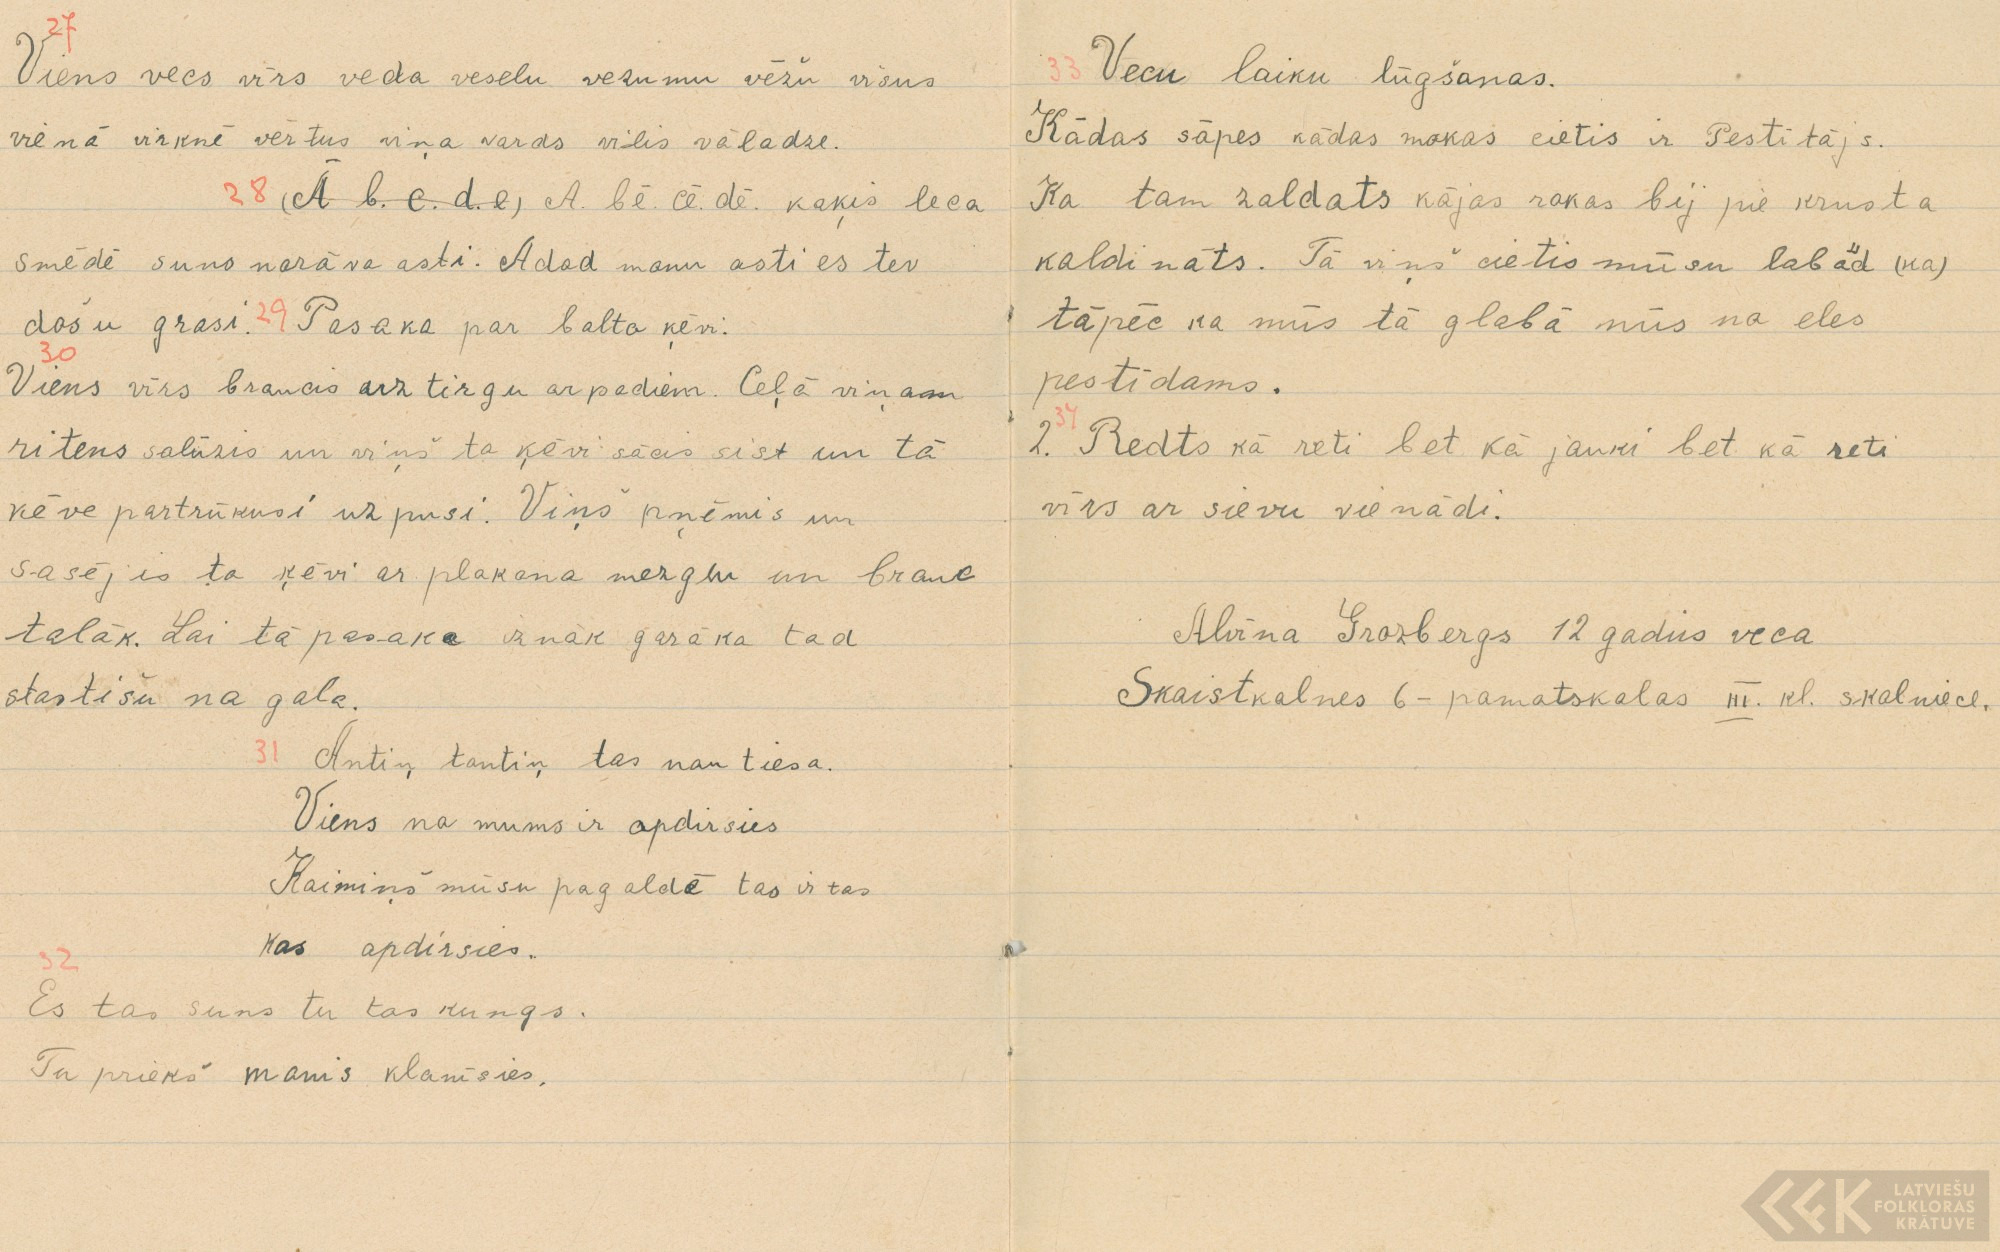 27
Viens vecs vīrs veda veselu vezumu vēžu visus
vienā virknē vērtus viņa vards vilis valadze.
28 (A b. c. d. e) A. bē. cē. dē. kaķis leca
smēdē suns norāva asti. Adod manu asti es tev
došu grasi. 29 Pasaka par balto ķēvi.
30
Viens vīrs braucis uz tirgu ar podiem. Ceļā viņam
ritens salūzis un viņš to ķēvi sācis sist un tā
kēve partrūkusi uz pusi. Viņš pņēmis un
sasējis to ķēvi ar plakana mezglu un brauc
talāk. Lai tā pasaka iznāk garāka tad
stastišu no gala.
31 Antiņ tantiņ tas nau tiesa.
Viens no mums ir apdirsies
Kaimiņš mūsu pagaldē tas ir tas
kas apdirsies.
32
Es tas suns tu tas kungs.
Tu priekš manis klanīsies.
33 Vecu laiku lūgšanas.
Kādas sāpes kādas mokas cietis ir Pestītājs.
Ka tam zaldats kājas rokas bij pie krusta
kaldināts. Tā viņš cietis mūsu labād (ka)
tāpēc ka mūs tā glabā mūs no eles
pestīdams.
34
2. Redts kā reti bet kā jauki bet kā reti
vīrs ar sievu vienādi.
Alvīna Grozbergs 12 gadus veca
Skaistkalnes 6-pamatskolas III. kl. skolniece.
LATVIEŠU
FOLKLORAS
KRĀTUVE